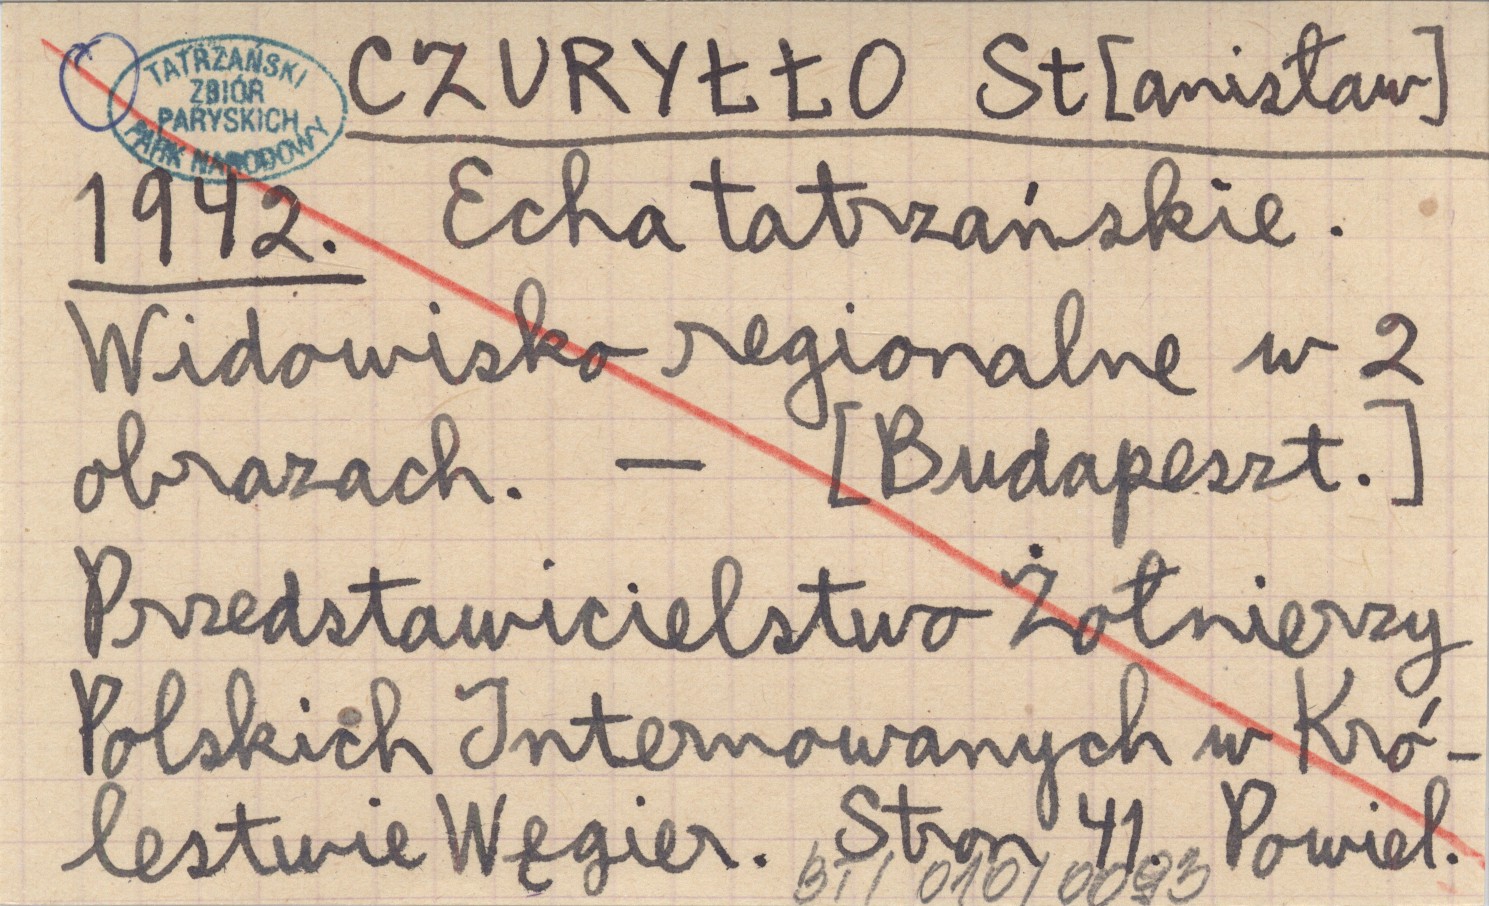 TATRZAŃSKI
ZBIÓR
PARYSKICH
PARK NARODOWY
CZURYŁŁO St[anisław]
1942. Echa tatrzańskie.
Widowisko regionalne w 2
obrazach. — [Budapeszt.]
Przedstawicielstwo Żołnierzy
Polskich Internowanych w Kró-
lestwie Węgier. Stron 41. Powiel.
BT/ 010/ 0093